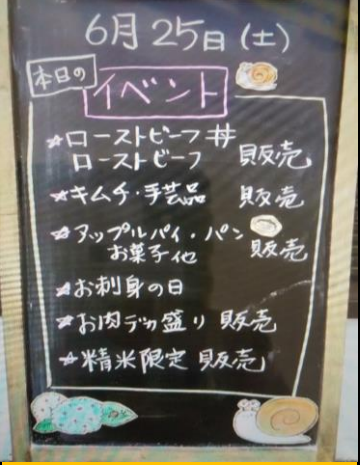 6月25日(土)
本日の
イベント
★ローストビーフ丼
ローストビーフ 販売
★キムチ・手芸品 販売
★アップルパイ・パン
お菓子他 販売
★お刺身の日
★お肉デカ盛り 販売
★精米限定 販売